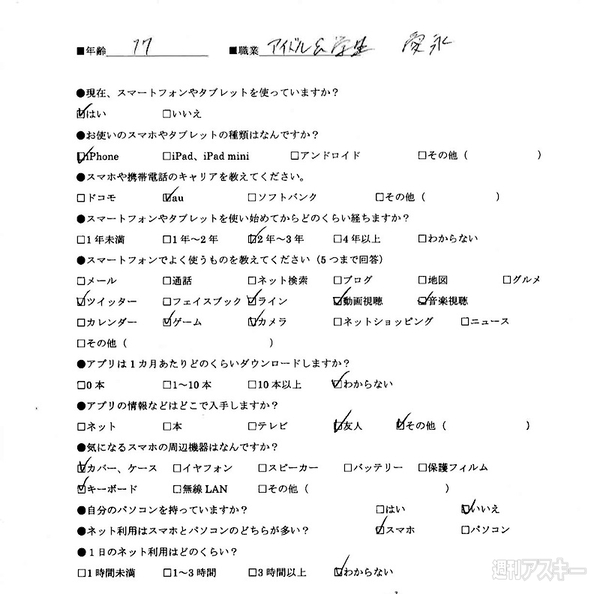 ■年齢 17 ■職業 アイドル&学生 愛永
●現在、スマートフォンやタブレットを使っていますか？
☑はい □いいえ
●お使いのスマホやタブレットの種類はなんですか？
☑iPhone □iPad、iPad mini □アンドロイド □その他（ ）
●スマホや携帯電話のキャリアを教えてください。
□ドコモ ☑au □ソフトバンク □その他（ ）
●スマートフォンやタブレットを使い始めてからどのくらい経ちますか？
□1年未満 □1年～2年 ☑2年～3年 □4年以上 □わからない
●スマートフォンでよく使うものを教えてください（5つまで回答）
□メール □通話 □ネット検索 □ブログ □地図 □グルメ
☑ツイッター □フェイスブック ☑ライン ☑動画視聴 ☑音楽視聴
□カレンダー ☑ゲーム ☑カメラ □ネットショッピング □ニュース
□その他（ ）
●アプリは1カ月あたりどのくらいダウンロードしますか？
□0本 □1～10本 □10本以上 ☑わからない
●アプリの情報などはどこで入手しますか？
□ネット □本 □テレビ ☑友人 ☑その他（ ）
●気になるスマホの周辺機器はなんですか？
☑カバー、ケース □イヤフォン □スピーカー □バッテリー □保護フィルム
☑キーボード □無線LAN □その他（ ）
●自分のパソコンを持っていますか？ □はい ☑いいえ
●ネット利用はスマホとパソコンのどちらが多い？ ☑スマホ □パソコン
●1日のネット利用はどのくらい？
□1時間未満 □1～3時間 □3時間以上 ☑わからない
週刊アスキー